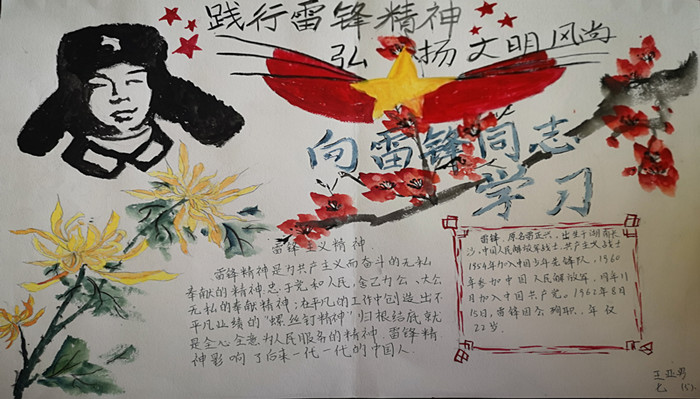 践行雷锋精神
弘扬文明风尚
向雷锋同志
学习
雷锋主义精神
雷锋精神是为共产主义而奋斗的无私
奉献的精神;忠于党和人民,舍己为公、大公
无私的奉献精神;在平凡的工作中创造出不
平凡业绩的"螺丝钉精神"归根结底就
是全心全意为人民服务的精神.雷锋精
神影响了后来一代一代的中国人.
雷锋,原名雷正兴,出生于湖南长
沙,中国人民解放军战士,共产主义战士
1954年加入中国少年先锋队,1960
年参加中国人民解放军,同年11
月加入中国共产党。1962年8月
15日,雷锋因公殉职,年仅
22岁.
王亚
七 (5)